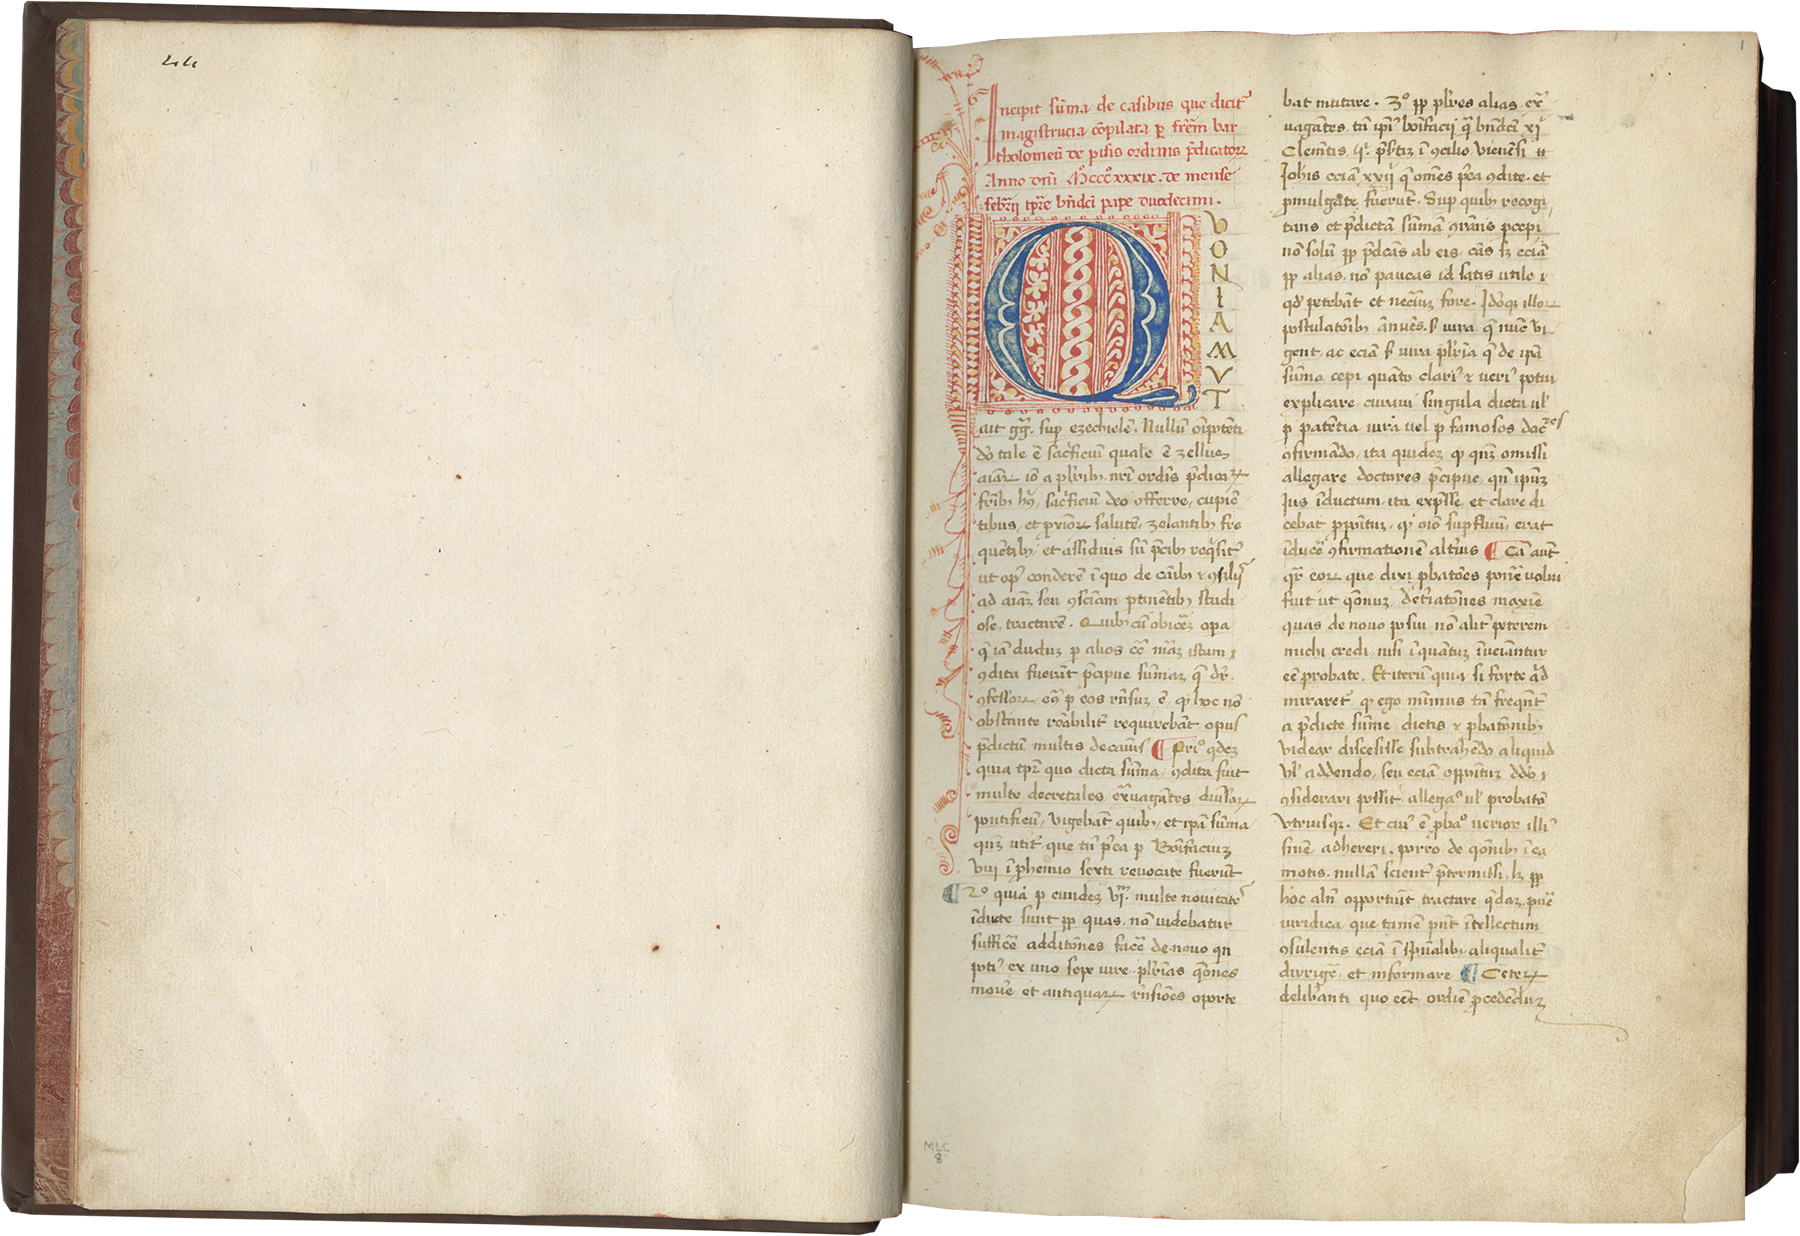 44
1
Incipit sūma de casibus que dicit᷒
magistrucia cōpilata ꝑ frēm bar
tholomeū de pisis ordinis p̄dicatoꝝ
Anno dn̄i Mᵒcccᵒxxxix. de mense
febr̄ij tꝑre bn̄dci pape duodecimi.
QVONIAM VT
ait gg̃. suꝑ ezechielē. Nullū oīpotēti
dō tale ē sacficiū quale ē zellus
aīaꝝ iō a plīby nrī ordīs p̄dicaꝝ
frīby hꝰ sacficiū deo offerre, cupiē
tibus, et ꝓximoꝝ salutē, zelantiby fre
quētiby, et assiduis sū p̄ciby reqͥsit᷒
ut opꝰ conderē ī quo de cāiby ⁊ ꝯsilijs
ad aīaz seu ꝯsciam ꝑtinētiby studi
ose, tractarē. Quiby cū obicēz opa
q̄ iā duduz ꝑ alios cc̄ māz istam
ꝯdita fuerāt p̄cipue sūmaz q̄ dr̄.
ꝯfessoꝝ ꝑ eos rn̄suz ē ꝙ hoc nō
obstante rōabilit᷒ requirebāt opus
p̄dictū multis de causis ¶ Priᵒ qͥdez
quia tꝑe quo dicta sūma, ꝯdita fuit
multe decretales ex̄uagātes diu̅soꝝ
pontificū, vigebāt quiby, et ipā sūma
qn̄z utit᷒ que tn̄ p̄ea ꝑ Bōifaciuz
viij ī ꝓhemio sexti reuocate fuerūt
¶ 2ᵒ quia ꝑ eundez vj. multe nouitates
īducte sunt ꝓp̄ quas, nō uidebatur
sufficē additōnes facē de nouo qn̄
potiꝰ ex uno sepe uire plīas q̄ones
mouē et antiquaꝝ rn̄siōes oporte
bat mutare. 3ᵒ ꝓp̄ pl̄res alias ex̄
uagātes tā ipīꝰ bōifacij q̄ bn̄dci xj
Clemētis q̄ p̄sītiz ī ꝯcilio vienēsi
Joh̄is eciā xxij q̄ omēs p̄ea ꝯdite. et
ꝓmulgate fuerūt. Suꝑ quiby recogi
tans et p̄dictā sūmā ꝯrans ꝑcepi
nō solū ꝓp̄ p̄dcās ab eis, cās sʒ eciā
ꝓp̄ alias, nō paucas id satis utile ⁊
qd̄ petebāt et nec̄iuz fore. Idōqꝫ illoꝝ
postulatōiby ānuēs. ꝯ iura q̄ nūc vi
gent, ac eciā ꝯ iura pl̄ria q̄ de ipā
sūma cepi quāto clariꝰ ⁊ ueriꝰ potui
explicare, curaui singula dicta ul̄
ꝑ patētia iura vel ꝑ famosos docͭᵉˢ
ꝯfirmādo, ita quidez ꝙ qn̄z omissi
allegare doctores p̄cipue, qn̄ ipūz
Jus īductum, ita exp̄sse, et clare di
cebat ꝓp̄oītuz, ꝙ oīo suꝑfluū, erat
īducē ꝯfirmationē altiꝰ ¶ Cā aūt
qr̄ eoꝝ que dixi ꝓbatōes ponē uolui
fuit ut q̄onuz, det̄iatōnes maxīe
quas de nouo posui nō alit᷒ peterem
michi credi, nisi ī quātuz īueiantur
eē probate. Et iterū quia si forte qͥd
miraret᷒ ꝙ ego mīmus tā freqn̄t᷒
a p̄dicte sūme, dictis ⁊ ꝓbatōniby
videar discesisse, subtrahēdo aliquid
ul̄ addendo, seu eciā opp̄oītuz dōo ⁊
ꝯsiderari possit, allegaᵒ ul̄ probatō
vtriusqꝫ. Et cuiꝰ ē ꝓbaᵒ uerior illiꝰ
sniē adhereri, porro de q̄oniby ī ea
motis, nullā scient᷒ p̄termissi, lʒ ꝓp̄
hoc aln̄ opportūit tractare qͥdaz, pūe
iuridica, que tamē pn̄t ītellectum
ꝯsulentis eciā ī spūaliby, aliqualit᷒
dirrigē, et informare ¶ Ceteꝝ
delibāti quo eēt ordiē ꝓcedēduz
MLC
8